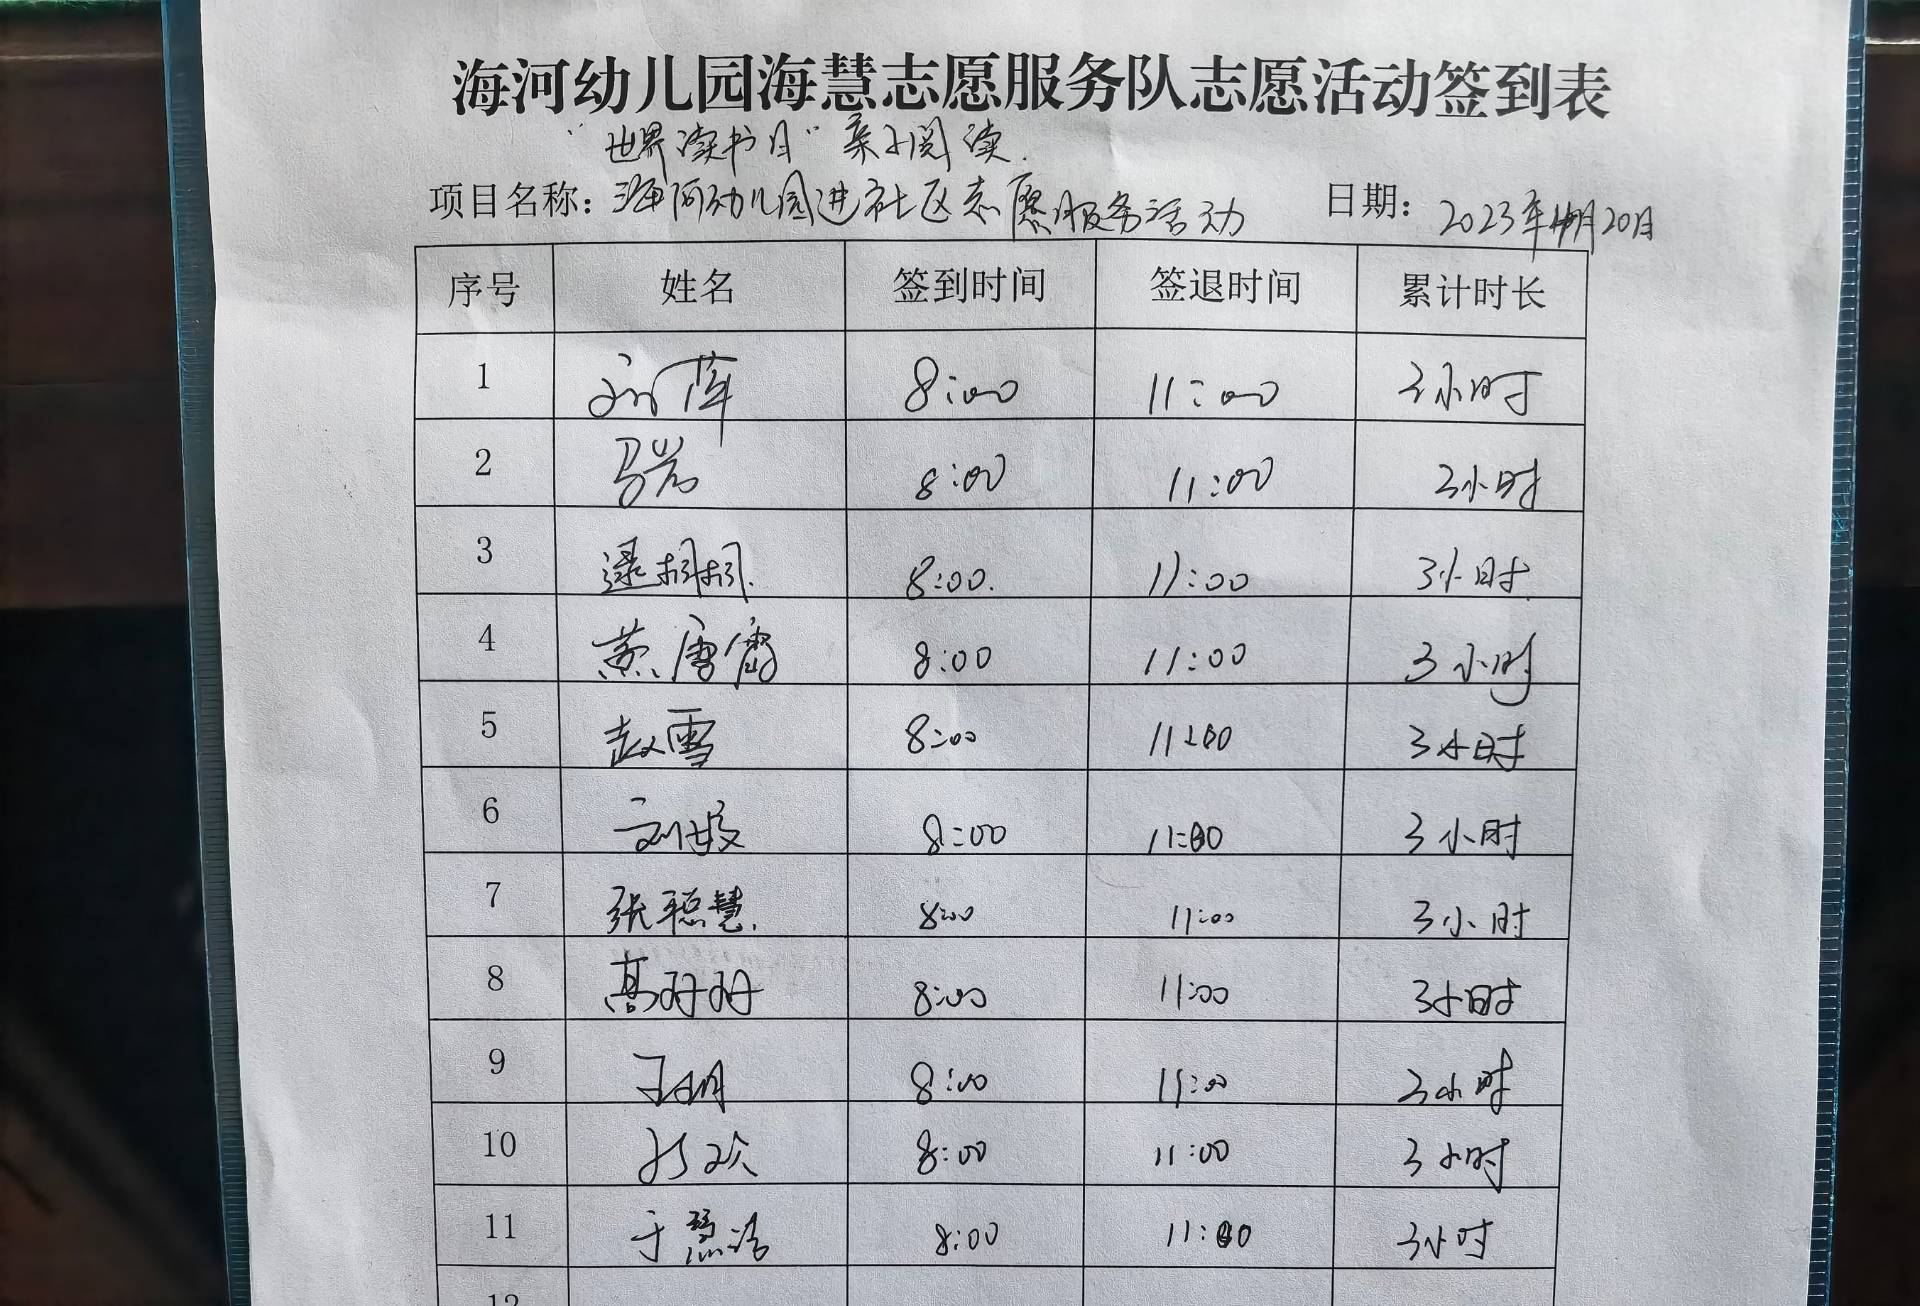 海河幼儿园海慧志愿服务队志愿活动签到表
“世界读书日”亲子阅读.
项目名称：海河幼儿园进社区志愿服务活动 日期：2023年4月20日
序号 姓名 签到时间 签退时间 累计时长
1 刘萍 8:00 11:00 3小时
2 马岩 8:00 11:00 3小时
3 逯桐桐. 8:00. 11:00 3小时
4 黄唐霄 8:00 11:00 3小时
5 赵雪 8:00 11:00 3小时
6 刘 8:00 11:00 3小时
7 张聪慧. 8:00 11:00 3小时
8 高好好 8:00 11:00 3小时
9 王明 8:00 11:00 3小时
10 欢 8:00 11:00 3小时
11 于 洁 8:00 11:00 3小时
12